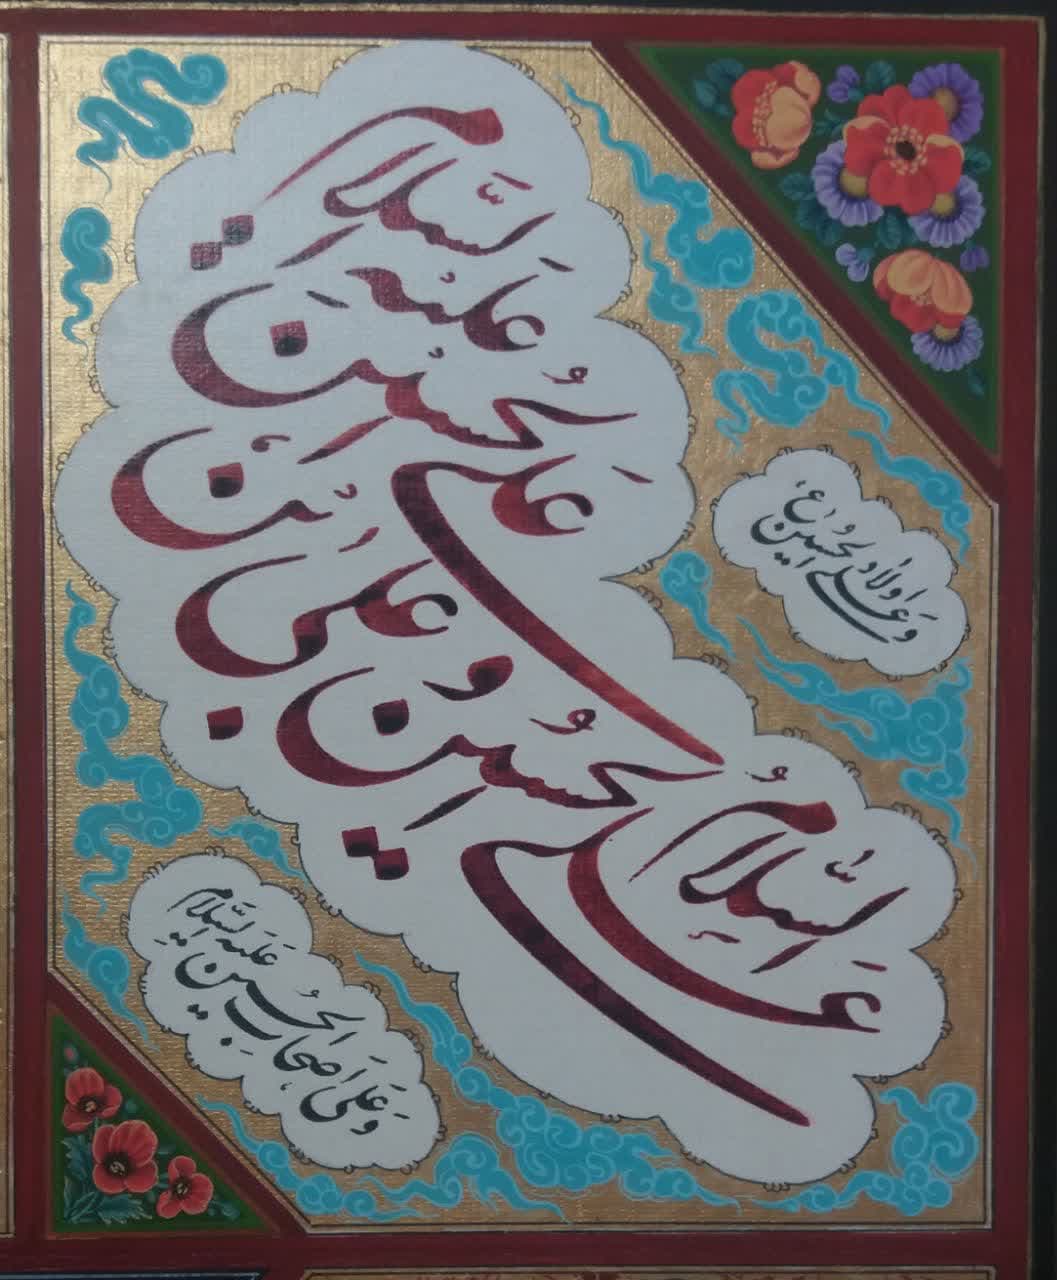 السَّلامُ عَلی الحُسین وَ عَلی عَلی ابن الحُسَین عَلیْه السَّلام
وَ علی اولاد الحُسین ع
وَ عَلَی اصحاب الحُسین عَلَیه السَّلام